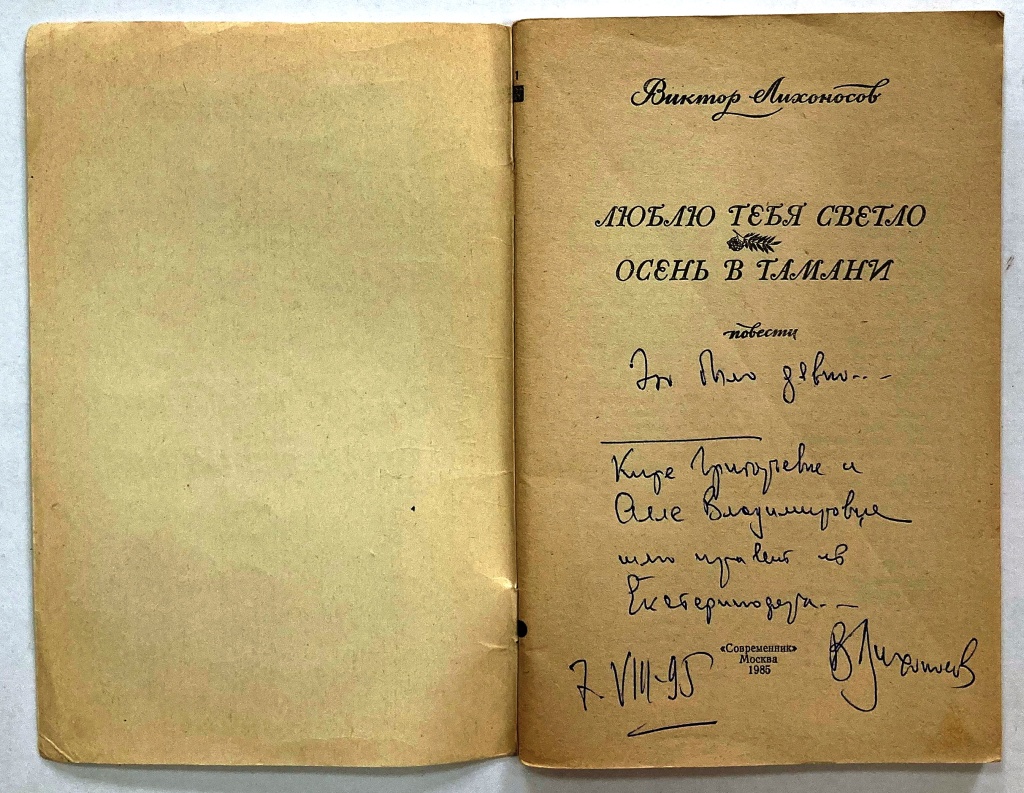 Виктор Лихоносов
ЛЮБЛЮ ТЕБЯ СВЕТЛО
ОСЕНЬ В ТАМАНИ
повести
Это было давно...
Кире Григорьевне и
Алле Владимировне
шлю привет из
Екатеринодара...
«Современник»
Москва
1985
В Лихоносов
7. VIII-95